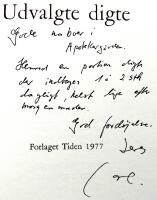 Udvalgte digte
Gode naboer i
Apotekergården.
Hermed en portion digte
der indtages 1 à 2 stk
dagligt, helst lige efter
morgenmaden.
God fordøjelse.
Jeres
Forlaget Tiden 1977